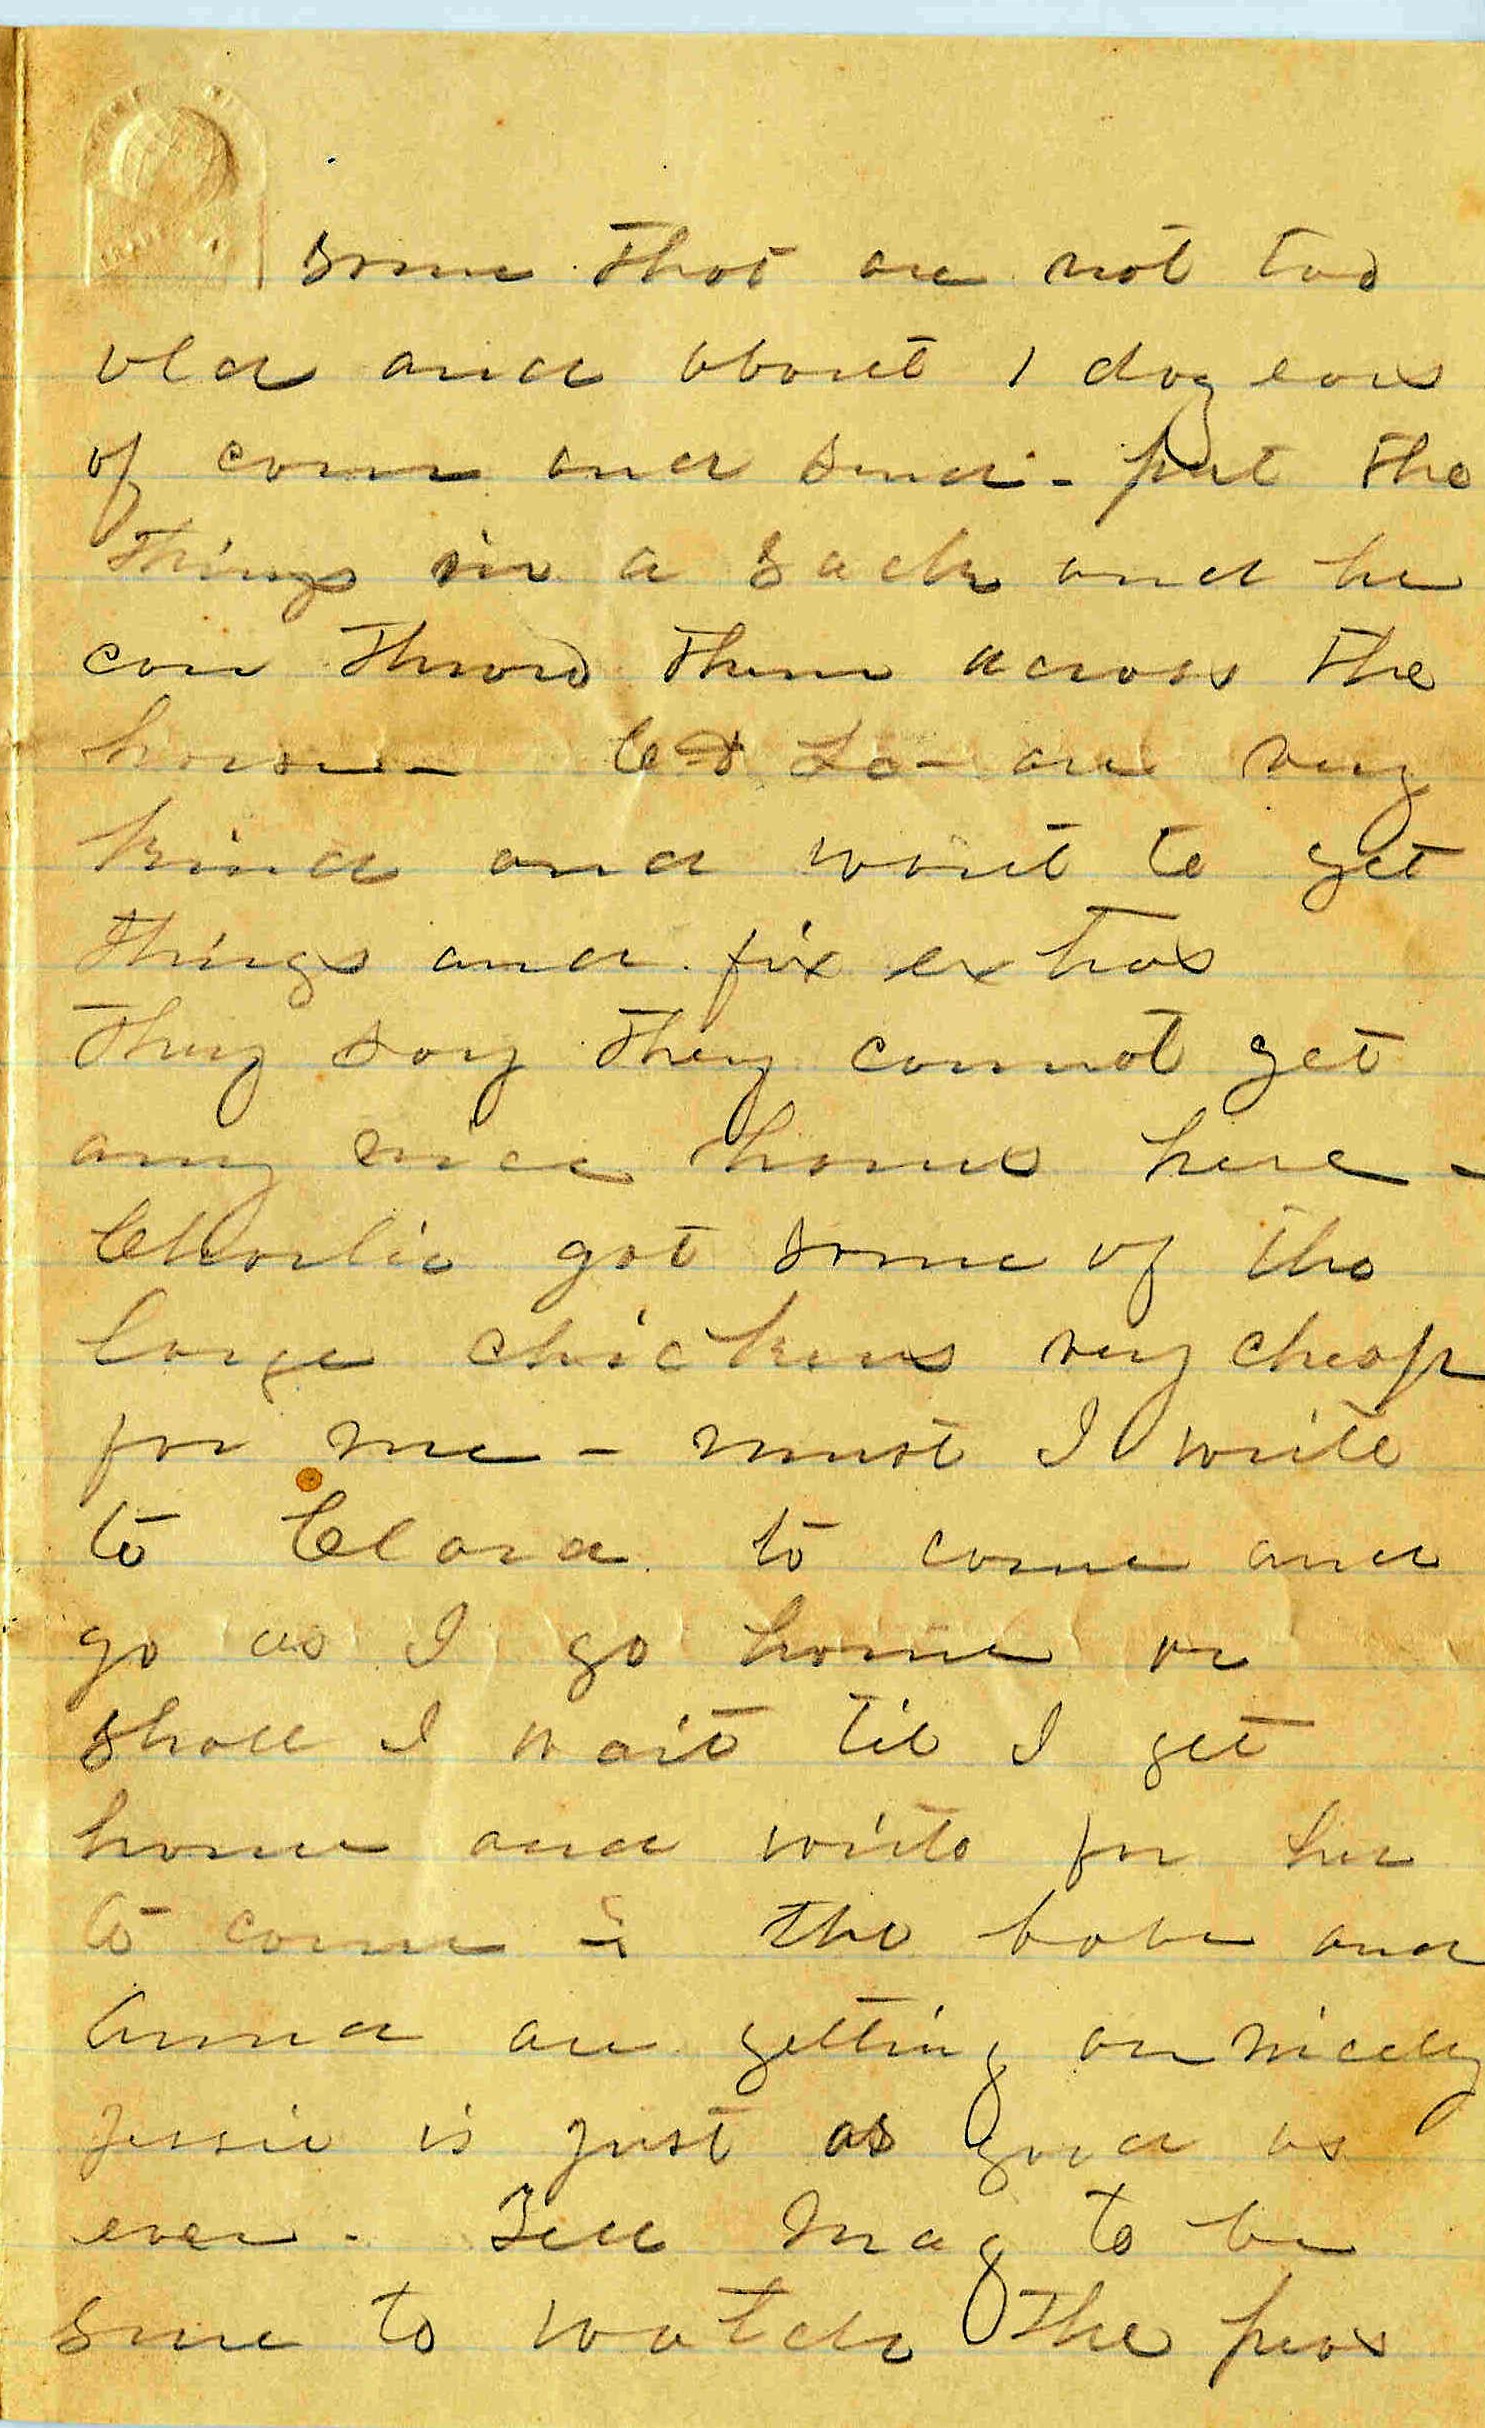 some that are not too
old and about 1 doz ears
of corn and send - put the
things in a sack and he
can throw them across the
horse - C & Lo - are very
kind and want to get
things and fix extras
They say they cannot get
any nice hams here -
Charlie got some of the
large chickens very cheap
for me - must I write
to Clara to come and
go as I go home or
shall I wait til I get
home and write for her
to come - the babe and
Anna are getting on nicely
Jessie is just as good as
ever - Tell Mag to be
sure to watch the peas